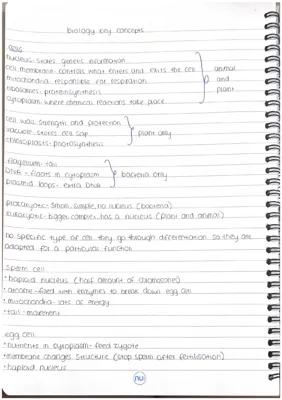 biology key concepts
cells
nucleus- stores genetic information
cell membrane- controls what enters and exits the cell
mitochondria- responsible for respiration
ribosomes- protein synthesis
cytoplasm- where chemical reactions take place
animal
and
plant
cell wall- strength and protection
vacuole- stores cell sap
chloroplasts- photosynthesis
plant only
flagellum- tail
DNA - floats in cytoplasm
plasmid loops- extra DNA
bacteria only
prokaryotic- small, simple, no nucleus (bacteria)
eukaryotic- bigger, complex, has a nucleus (plant and animal)
no specific type of cell. they go through differentiation so they are
adapted for a particular function
sperm cell
• haploid nucleus (half amount of chromosomes)
• acrosome - filled with enzymes to break down egg cell
• mitochondria- lots of energy
• tail - movement
egg cell
• nutrients in cytoplasm- feed zygote
• membrane changes structure (stop sperm after fertilisation)
• haploid nucleus
nu